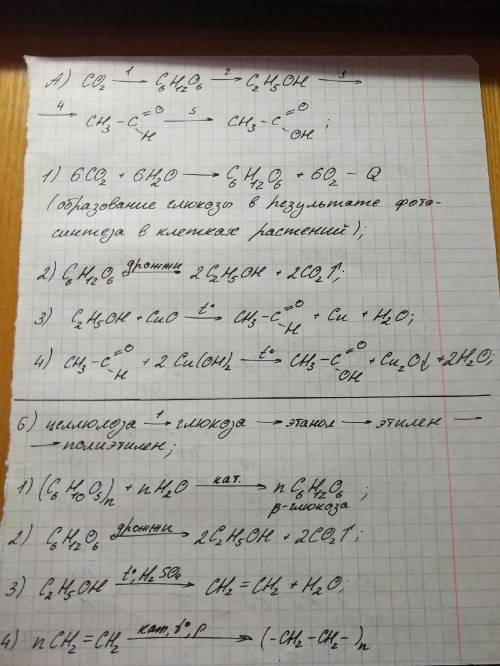 А) CO₂ →¹ C₆H₁₂O₆ →² C₂H₅OH →³
→⁴ CH₃-C(=O)H →⁵ CH₃-C(=O)OH;
1) 6CO₂ + 6H₂O → C₆H₁₂O₆ + 6O₂ - Q
(образование глюкозы в результате фото-
синтеза в клетках растений);
2) C₆H₁₂O₆ дрожжи→ 2C₂H₅OH + 2CO₂↑;
3) C₂H₅OH + CuO t°→ CH₃-C(=O)H + Cu + H₂O;
4) CH₃-C(=O)H + 2Cu(OH)₂ t°→ CH₃-C(=O)OH + Cu₂O↓ + 2H₂O;
б) целлюлоза →¹ глюкоза → этанол → этилен →
→ полиэтилен;
1) (C₆H₁₀O₅)n + nH₂O кат.→ nC₆H₁₂O₆;
β-глюкоза
2) C₆H₁₂O₆ дрожжи→ 2C₂H₅OH + 2CO₂↑;
3) C₂H₅OH t°, H₂SO₄→ CH₂=CH₂ + H₂O;
4) nCH₂=CH₂ кат, t°, p→ (-CH₂-CH₂-)n